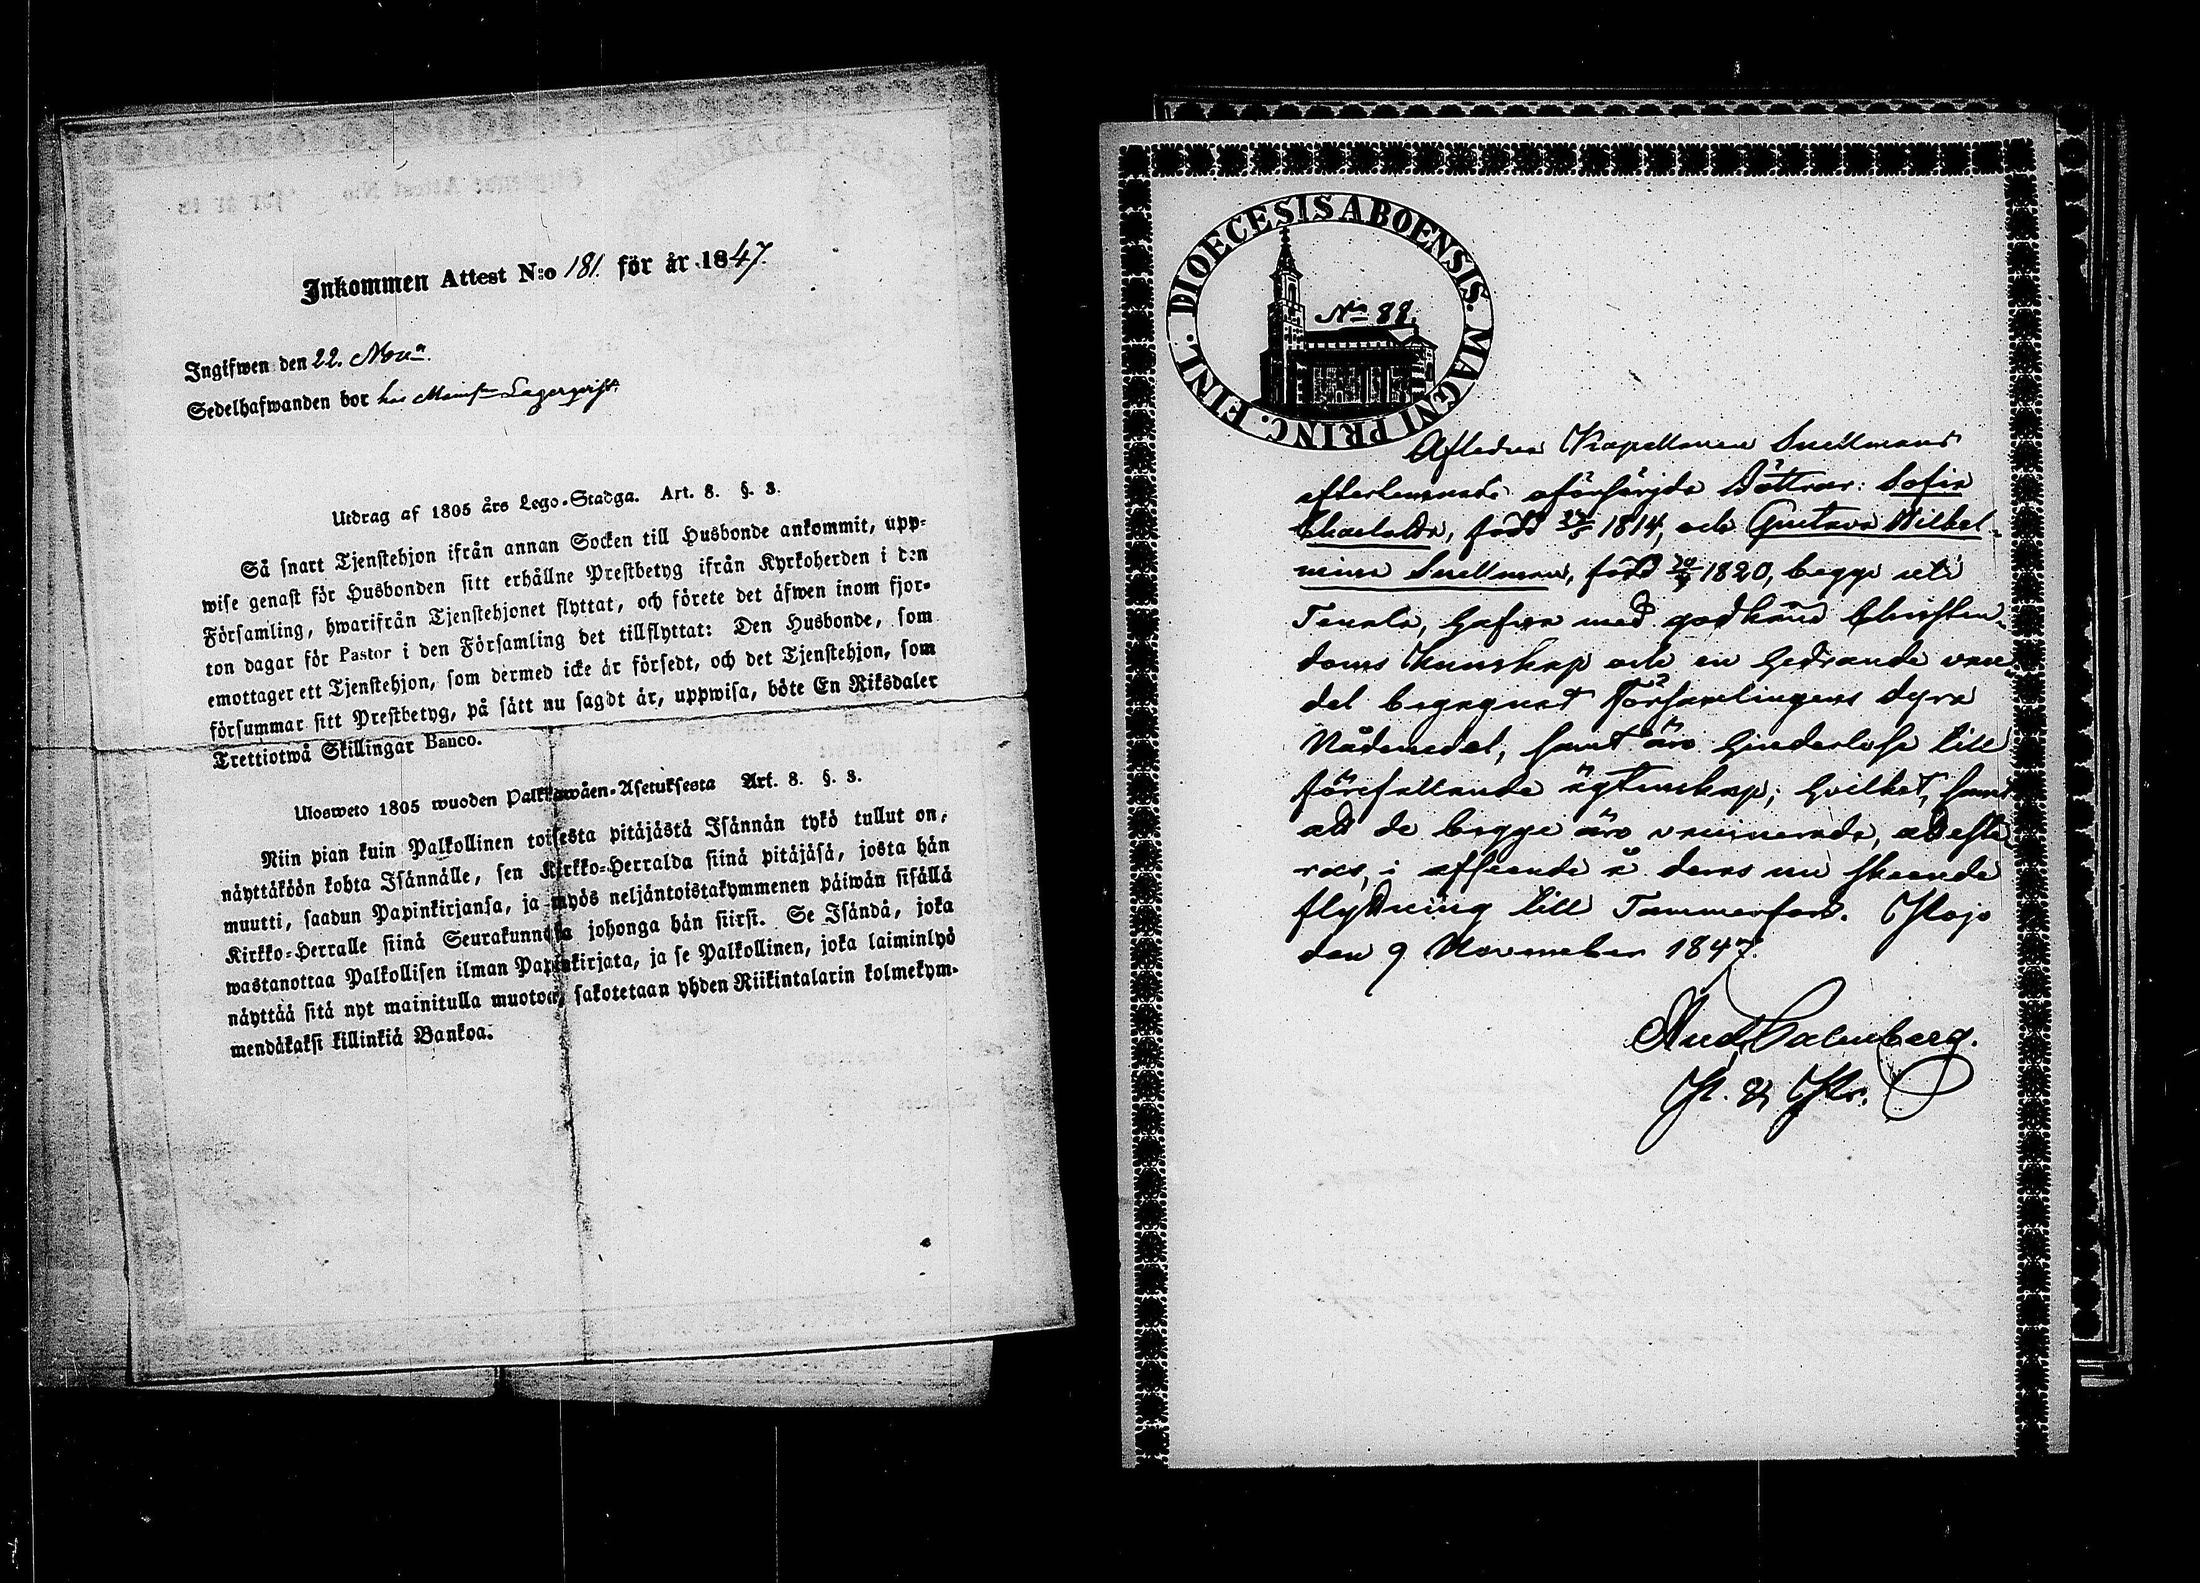 Inkommen Attest N:o 181. för år 1847.
Ingifwen den 22. Nov.
Sedelhafwanden bor hos Lagerqvist.
Utdrag af 1805 års Lego-Stadga. Art. 8. §. 3.
Så snart Tjenstehjon ifrån annan Socken till Husbonde ankommit, upp-
wise genast för Husbonden sitt erhållne Prestbetyg ifrån Kyrkoherden i den
Församling, hwarifrån Tjenstehjonet flyttat, och förete det äfwen inom fjor-
ton dagar för Pastor i den Församling det tillflyttat: Den Husbonde, som
emottager ett Tjenstehjon, som dermed icke är försedt, och det Tjenstehjon, som
försummar sitt Prestbetyg, på sätt nu sagdt är, uppwisa, böte En Riksdaler
Trettiotwå Skillingar Banco.
Ulosweto 1805 wuoden Palkkawäen-Asetuksesta Art. 8. §. 3.
Niin pian kuin Palkollinen toisesta pitäjästä Isännän tykö tullut on,
näyttäköön kohta Isännälle, sen Kirkko-Herralda siinä pitäjäsä, josta hän
muutti, saadun Papinkirjansa, ja myös neljäntoistakymmenen päiwän sisällä
Kirkko-Herralle siinä Seurakunnasa johonga hän siirsi. Se Isändä, joka
wastanottaa Palkollisen ilman Papinkirjata, ja se Palkollinen, joka laiminlyö
näyttää sitä nyt mainitulla muotoa, sakotetaan yhden Riikintalarin kolmekym-
mendäkaksi killinkiä Bankoa.
DIOECESIS ABOENSIS. MAGNI PRINC. FINL.
No 88.
Aflidna Kapellanen Snellmans
efterlemnade oförsörjda Döttrar: Sofia
född 1814, och Gustava Wilhel-
mina Snellman, född 1820, begge uti
Tenala, hafva med godkänd Christen-
doms kunskap och en hedrande van-
del begagnat Församlingens dyra
Nådemedel, samt äro hinderlösa till
förefallande ägtenskap; hvilket, samt
att de begge äro vaccinerade, atteste-
ras, i afseende å deras nu skeende
flyttning till Tammerfors. Ilojo
den 9 November 1847.